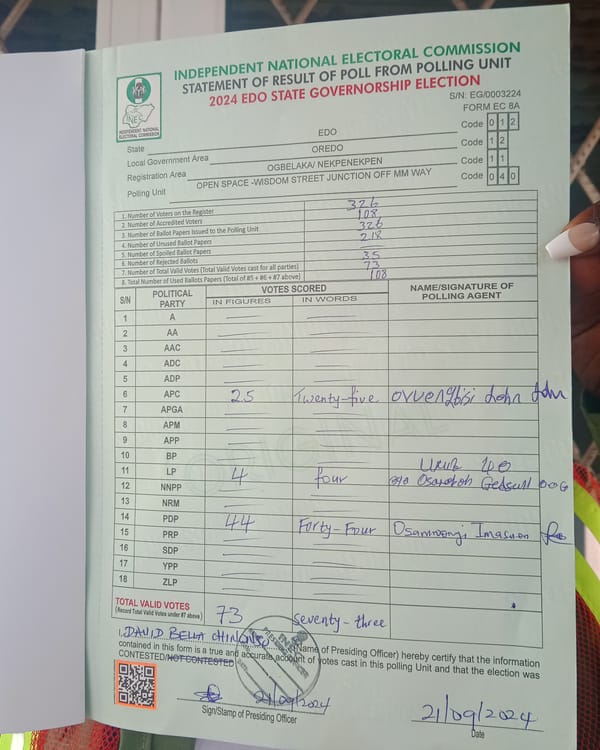 INDEPENDENT NATIONAL ELECTORAL COMMISSION
STATEMENT OF RESULT OF POLL FROM POLLING UNIT
2024 EDO STATE GOVERNORSHIP ELECTION
INEC
INDEPENDENT NATIONAL ELECTORAL COMMISSION
S/N: EG/0003224
FORM EC 8A
State EDO Code 0 1 2
Local Government Area OREDO Code 1 2
Registration Area OGBELAKA/ NEKPENEKPEN Code 1 1
Polling Unit OPEN SPACE -WISDOM STREET JUNCTION OFF MM WAY Code 0 4 0
1. Number of Voters on the Register 326
2. Number of Accredited Voters 108
3. Number of Ballot Papers Issued to the Polling Unit 326
4. Number of Unused Ballot Papers 218
5. Number of Spoiled Ballot Papers —
6. Number of Rejected Ballots 35
7. Number of Total Valid Votes (Total Valid Votes cast for all parties) 73
8. Total Number of Used Ballots Papers (Total of #5 + #6 + #7 above) 108
S/N POLITICAL PARTY VOTES SCORED NAME/SIGNATURE OF POLLING AGENT
IN FIGURES IN WORDS
1 A
2 AA
3 AAC
4 ADC
5 ADP
6 APC 25 Twenty-five John
7 APGA
8 APM
9 APP
10 BP
11 LP 4 four
12 NNPP
13 NRM
14 PDP 44 Forty-Four
15 PRP
16 SDP
17 YPP
18 ZLP
TOTAL VALID VOTES 73 Seventy-three
(Record Total Valid Votes under #7 above)
I, DAVID BELLA (Name of Presiding Officer) hereby certify that the information
contained in this form is a true and accurate account of votes cast in this polling Unit and that the election was
CONTESTED/NOT CONTESTED
21/09/2024
Sign/Stamp of Presiding Officer
21/09/2024
Date